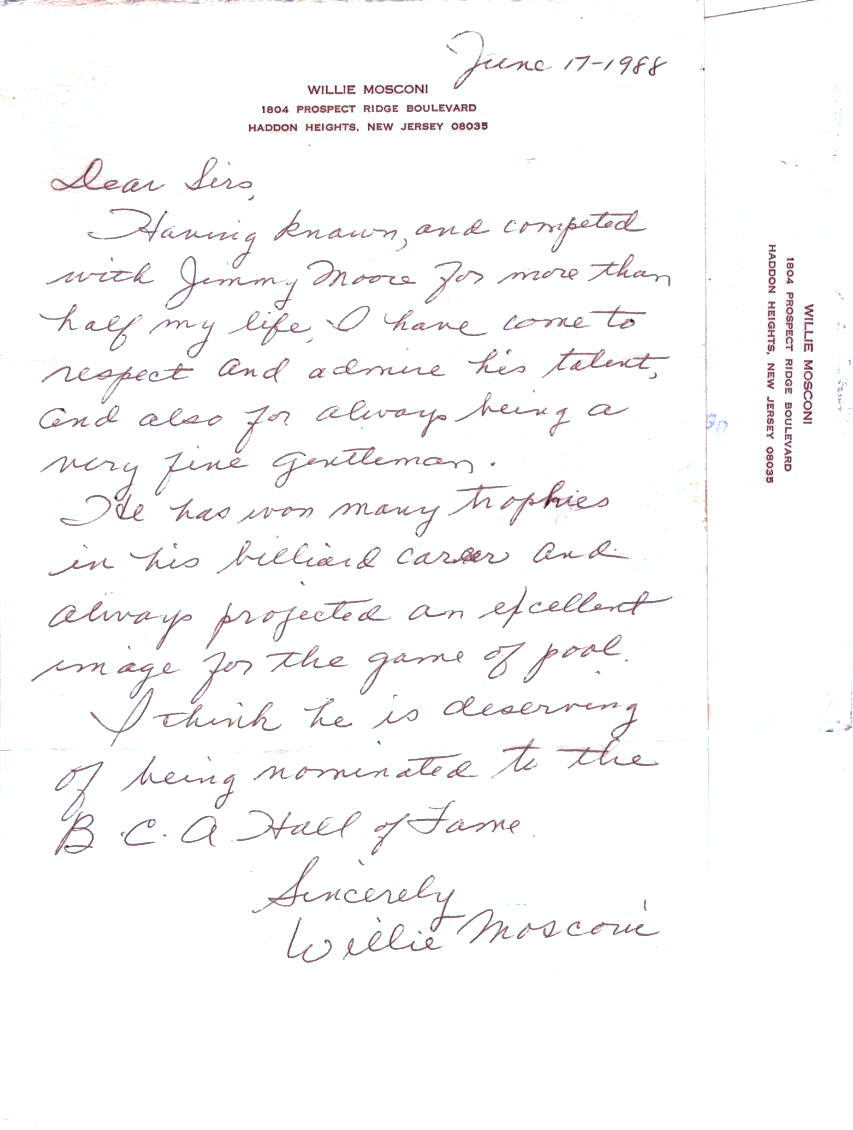 June 17-1988
WILLIE MOSCONI
1804 PROSPECT RIDGE BOULEVARD
HADDON HEIGHTS, NEW JERSEY 08035
Dear Sirs,
Having known, and competed
with Jimmy Moore for more than
half my life, I have come to
respect and admire his talent,
and also for always being a
very fine gentleman.
He has won many trophies
in his billiard career and
always projected an excellent
image for the game of pool.
I think he is deserving
of being nominated to the
B.C.A Hall of Fame.
Sincerely
Willie Mosconi
WILLIE MOSCONI
1804 PROSPECT RIDGE BOULEVARD
HADDON HEIGHTS, NEW JERSEY 08035